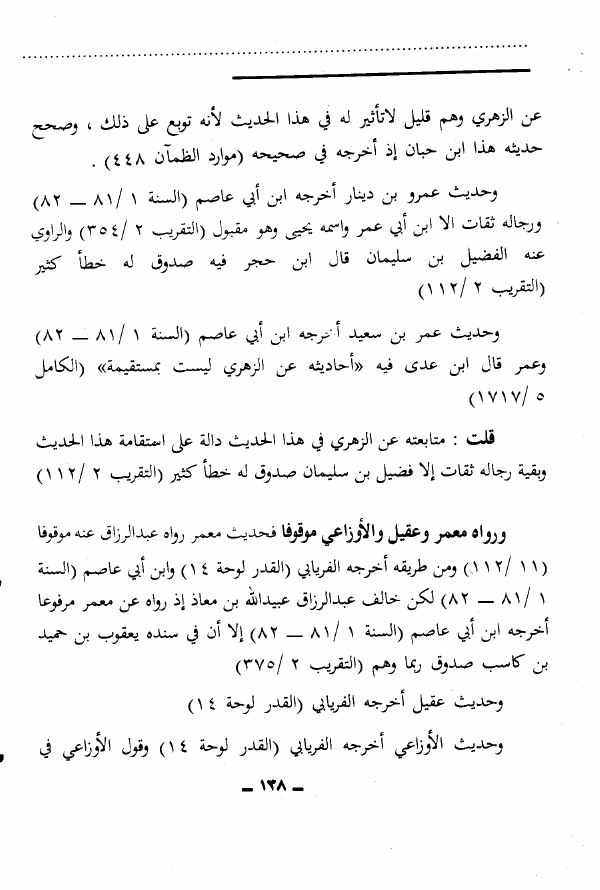 عن الزهري وهم قليل لاتأثير له في هذا الحديث لأنه توبع على ذلك ، وصحح
حديثه هذا ابن حبان إذ أخرجه في صحيحه (موارد الظمآن ٤٤٨) .
وحديث عمرو بن دينار أخرجه ابن أبي عاصم (السنة ١ /٨١ ــ ٨٢)
ورجاله ثقات الا ابن أبي عمر واسمه يحيى وهو مقبول (التقريب ٢ /٣٥٤) والراوي
عنه الفضيل بن سليمان قال ابن حجر فيه صدوق له خطأ كثير
(التقريب ٢ /١١٢)
وحديث عمر بن سعيد أخرجه ابن أبي عاصم (السنة ١ /٨١ ــ ٨٢)
وعمر قال ابن عدى فيه «أحاديثه عن الزهري ليست بمستقيمة» (الكامل
٥ /١٧١٧)
قلت : متابعته عن الزهري في هذا الحديث دالة على استقامة هذا الحديث
وبقية رجاله ثقات إلا فضيل بن سليمان صدوق له خطأ كثير (التقريب ٢ /١١٢)
ورواه معمر وعقيل والأوزاعي موقوفا فحديث معمر رواه عبدالرزاق عنه موقوفا
(١١ /١١٢) ومن طريقه أخرجه الفريابي (القدر لوحة ١٤) وابن أبي عاصم (السنة
١ /٨١ ــ ٨٢) لكن خالف عبدالرزاق عبيدالله بن معاذ إذ رواه عن معمر مرفوعا
أخرجه ابن أبي عاصم (السنة ١ /٨١ ــ ٨٢) إلا أن في سنده يعقوب بن حميد
بن كاسب صدوق ربما وهم (التقريب ٢ /٣٧٥)
وحديث عقيل أخرجه الفريابي (القدر لوحة ١٤)
وحديث الأوزاعي أخرجه الفريابي (القدر لوحة ١٤) وقول الأوزاعي في
ــ ١٣٨ ــ